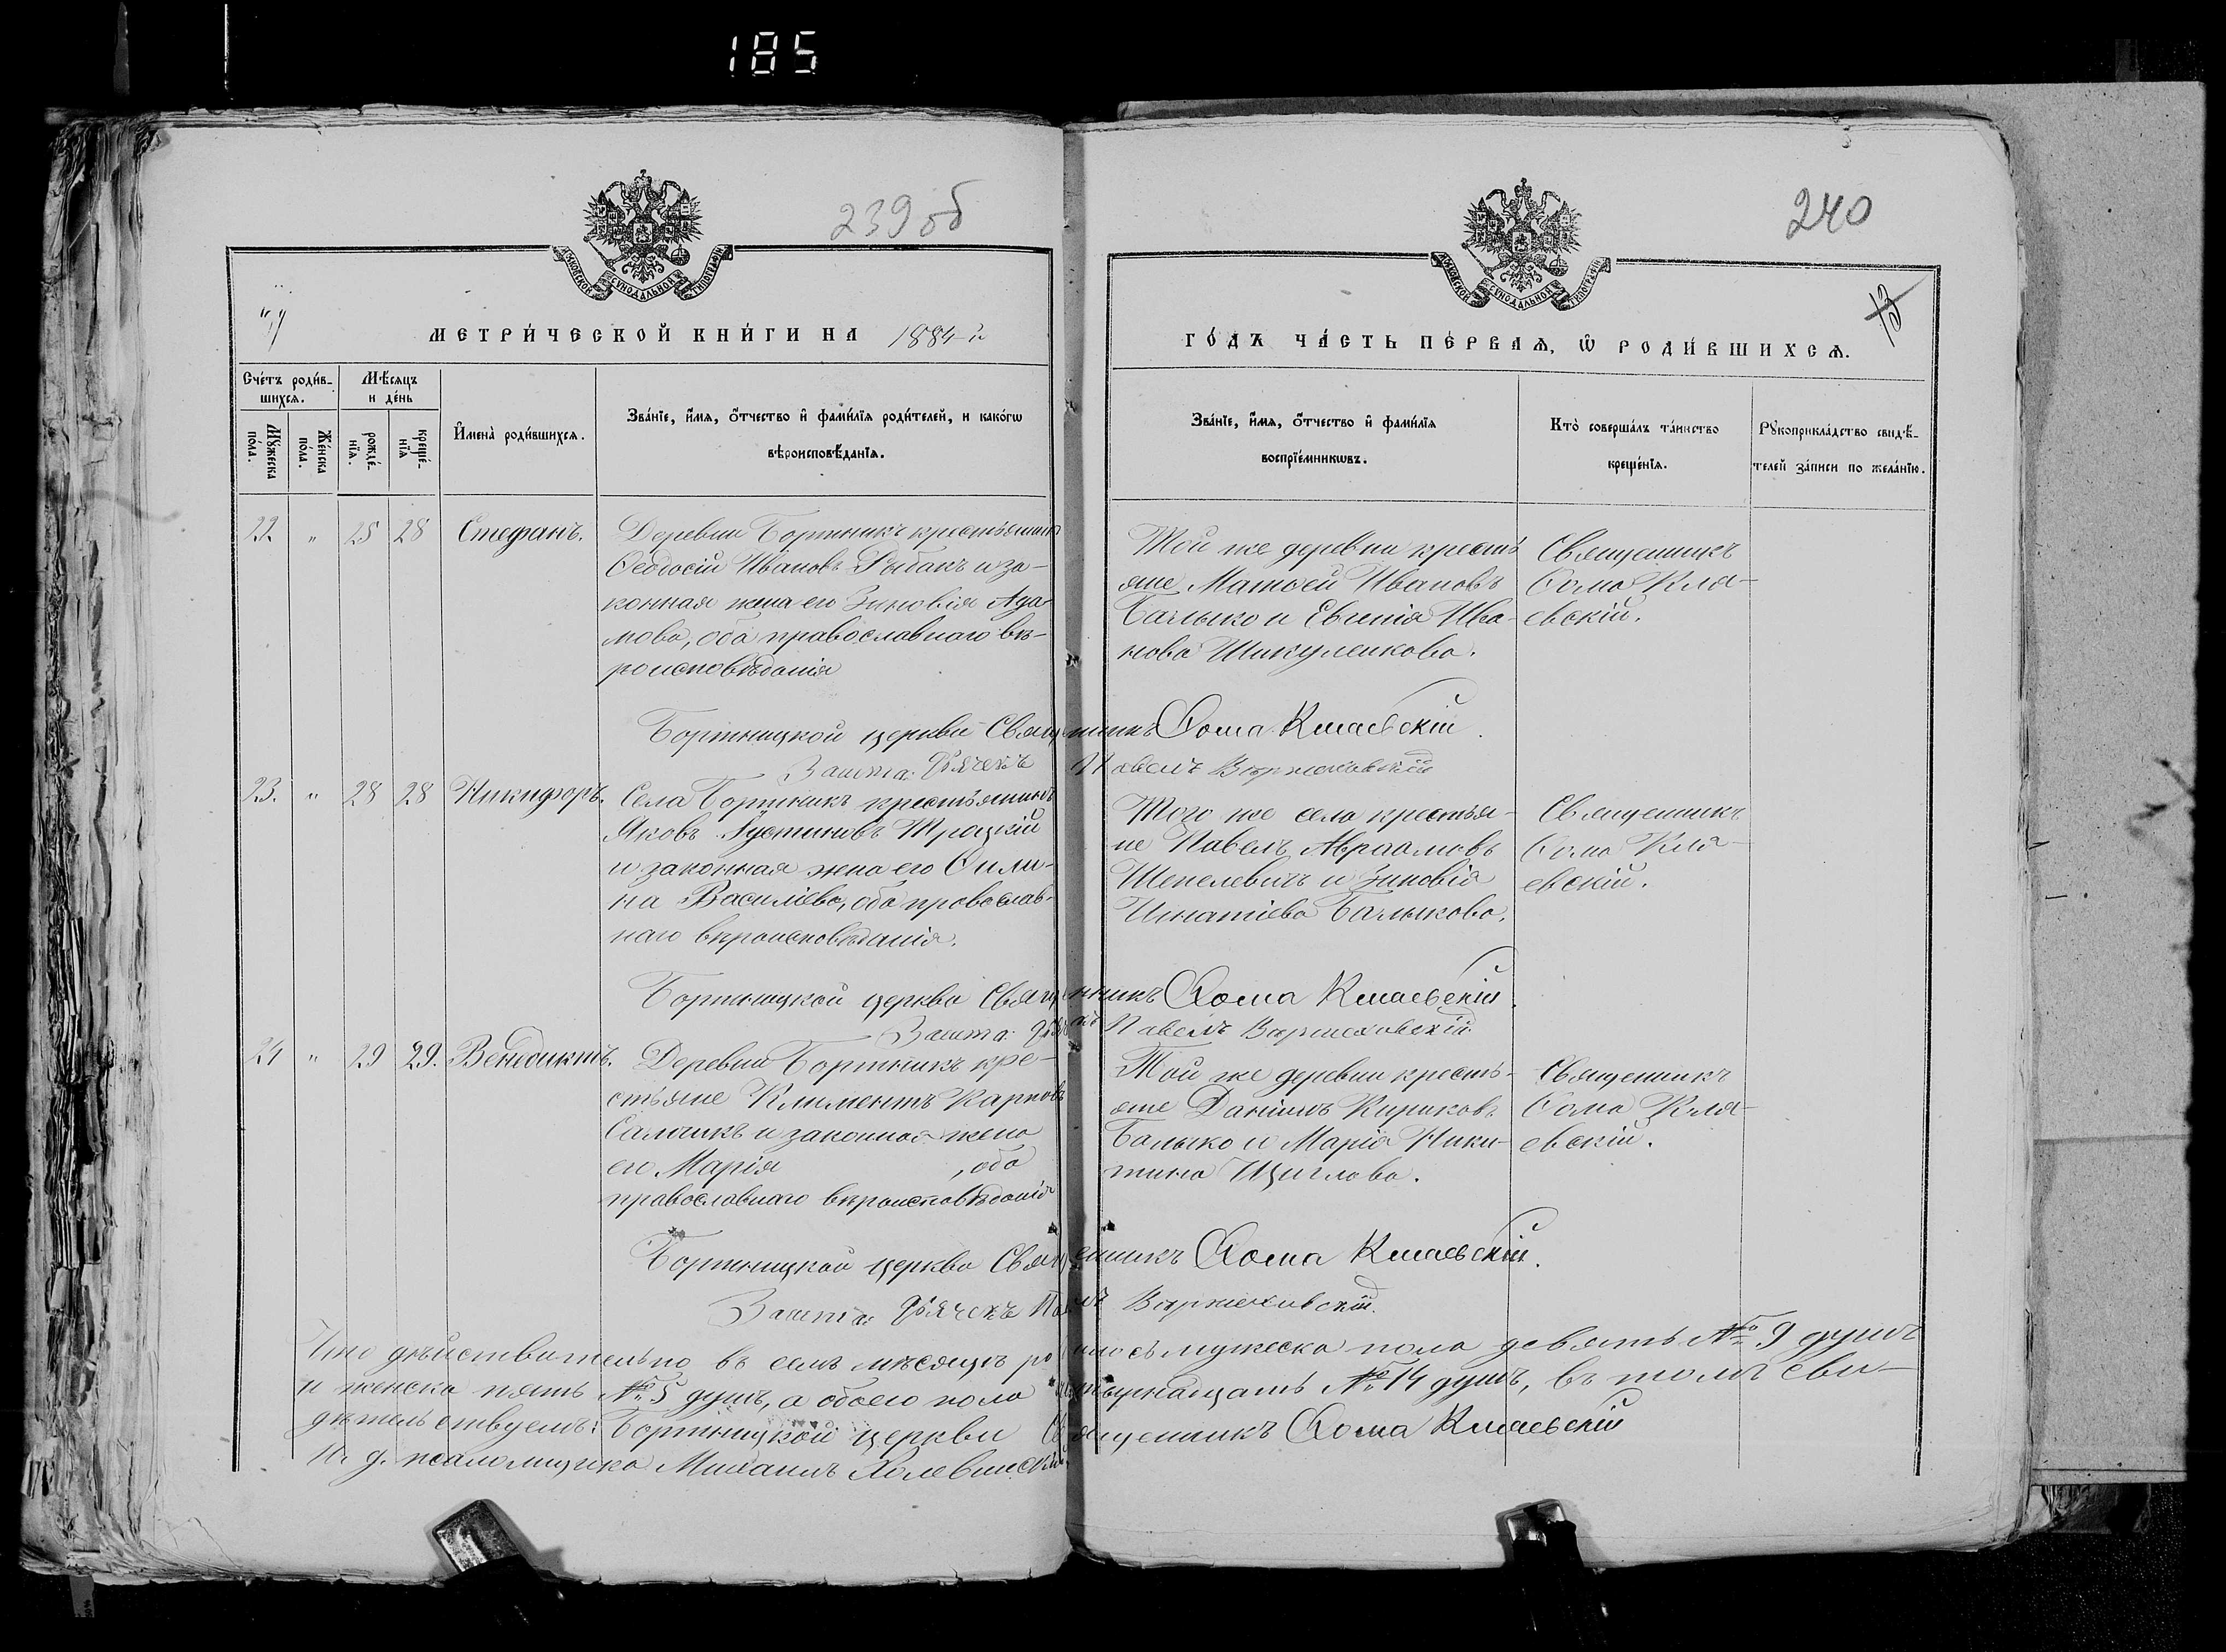 185
239 об
240
МОСКОВСКОЙ СѴНОДАЛЬНОЙ ТИПОГРАФІИ
МОСКОВСКОЙ СѴНОДАЛЬНОЙ ТИПОГРАФІИ
13
МЕТРИ́ЧЕСКОЙ КНИ́ГИ НА 1884-й
ГО́ДЪ ЧА́СТЬ ПЕ́РВАѦ, Ѡ҆ РОДИ́ВШИХСѦ.
Сче́тъ роди́в-
шихсѧ.
Мꙋ́жеска
по́ла.
Же́нска
по́ла.
Мѣ́сѧцъ
и де́нь
рожде́-
нїѧ.
креще́-
нїѧ
И҆мена̀ роди́вшихсѧ.
Зва́нїе, и҆́мѧ, ѻ҆́тчество и҆ фами́лїѧ роди́телей, и како́гѡ
вѣроисповѣ́данїѧ.
Зва́нїе, и҆́мѧ, ѻ҆́тчество и҆ фами́лїѧ
воспрїе́мникѡвъ.
Кто̀ соверша́лъ та́инство
креще́нїѧ.
Рꙋкоприкла́дство свидѣ́-
телей за́писи по жела́нїю.
22 " 25 28 Стефанъ.
Деревни Бортникъ крестьянинъ
Ѳеодосій Ивановъ Рыбакъ и за-
конная жена его Зиновія Ада-
мова, оба православнаго вѣ-
роисповѣданія
Той же деревни кресть-
яне Матѳей Ивановъ
Балыко и Евгенія Ива-
нова
Священникъ
Ѳома Кля-
евскій.
Бортницкой церкви Священникъ Ѳома Кляевскій.
Зашта. Дьячекъ Павелъ
23. " 28 28 Никифоръ.
Села Бортникъ крестьянинъ
Яковъ Іустиновъ Троцкій
и законная жена его
Василіева, оба православ-
наго вѣроисповѣданія.
Того же села крестья-
не Павелъ Авраамовъ
Шепелевичъ и Зиновія
Игнатіева Балыкова.
Священникъ
Ѳома Кля-
евскій.
Бортницкой церкви Священникъ Ѳома Кляевскій.
Зашта. Дьячекъ Павелъ
24 " 29 29. Венедиктъ.
Деревни Бортникъ кре-
стьяне Климентъ Карповъ
и законная жена
его Марія , оба
православнаго вѣроисповѣданія
Той же деревни кресть-
яне Даніилъ Кириковъ
Балыко и Марія Ники-
тина Щиглова.
Священникъ
Ѳома Кля-
евскій.
Бортницкой церкви Священникъ Ѳома Кляевскій.
Зашта. Дьячекъ Павелъ
Что дѣйствительно въ семъ мѣсяцѣ родилось мужеска пола девять № 9 душъ
и женска пять № 5 душъ, а обоего пола четырнадцать № 14 душъ, въ томъ сви-
дѣтельствуемъ: Бортницкой церкви Священникъ Ѳома Кляевскій
И. д. псаломщика Михаилъ